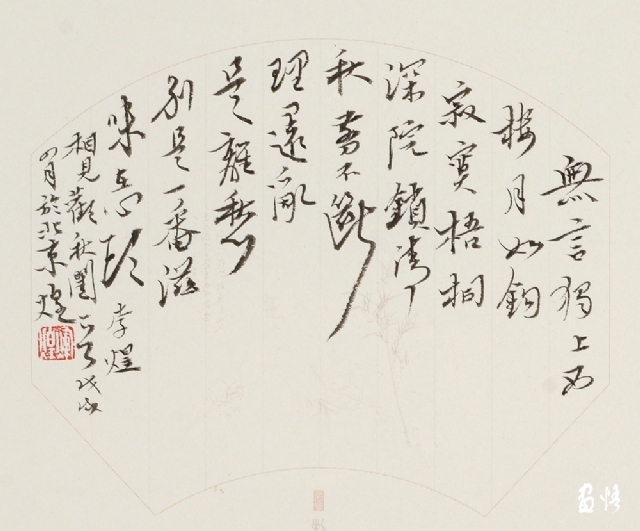 無言獨上西
樓月如鉤
寂寞梧桐
深院鎖清
秋剪不斷
理還亂
是離愁
別是一番滋
味在心頭 李煜
相見歡秋閨 戊戌
四月於北京 煌